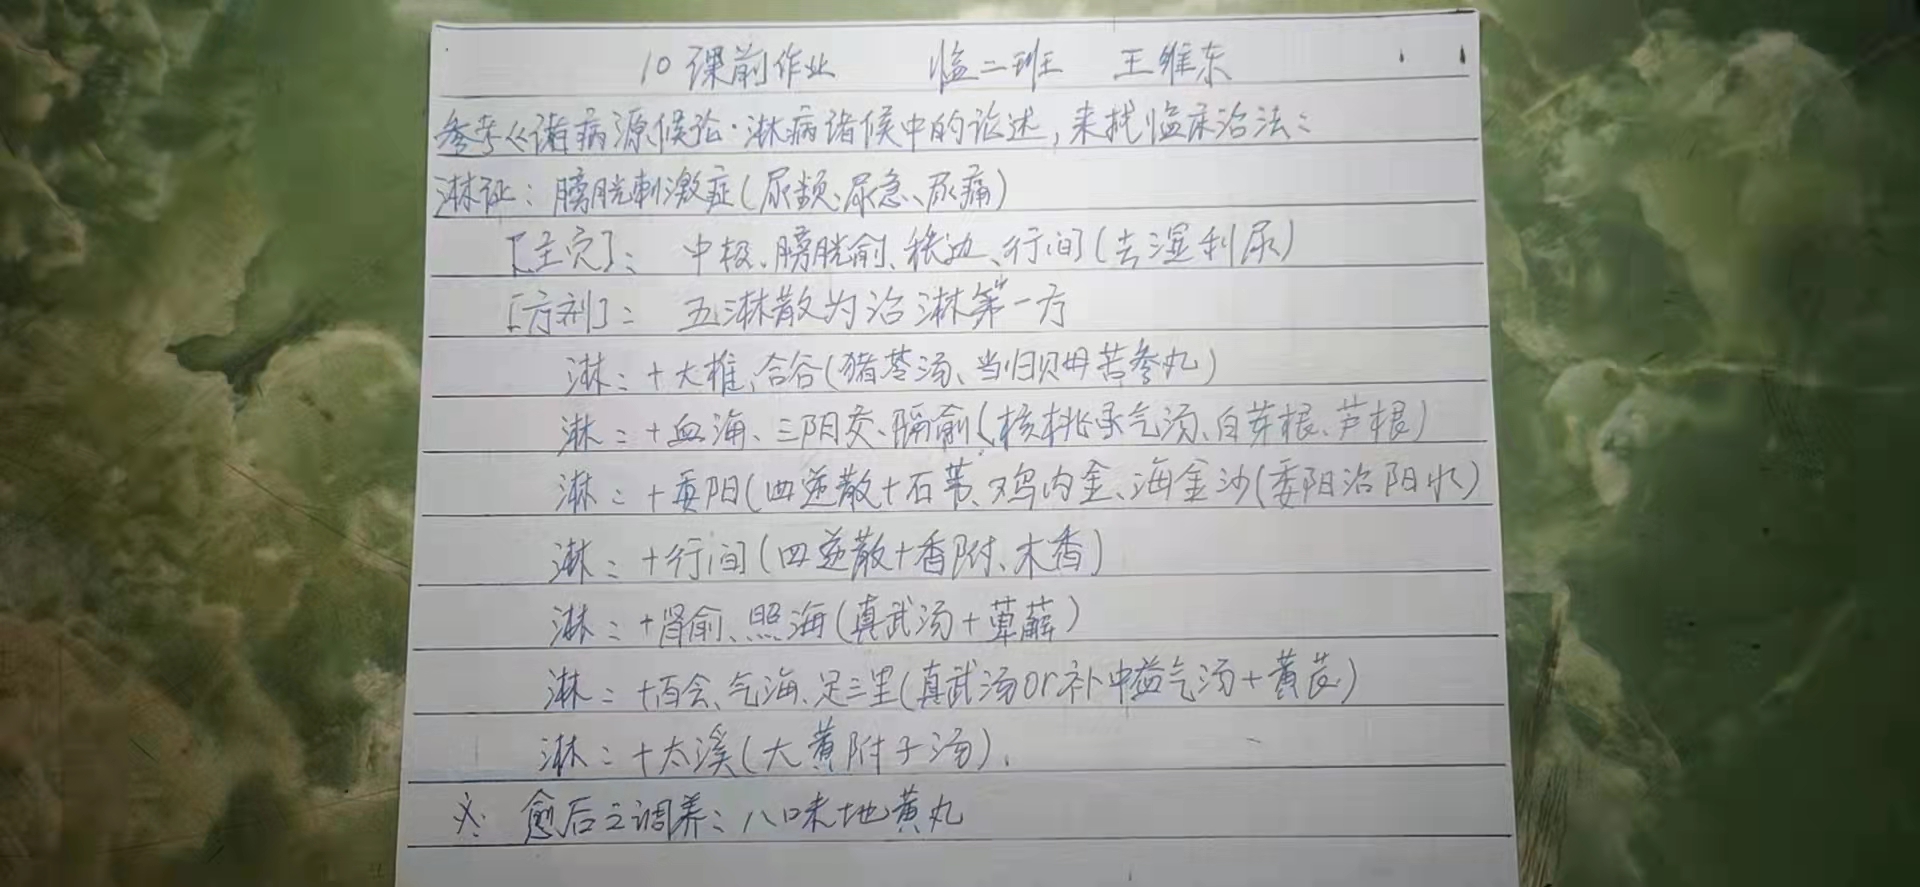 10 课前作业 临二班 王维东
参考《诸病源候论·淋病诸候中的论述,来找临床治法:
淋证:膀胱刺激症(尿频、尿急、尿痛)
[主穴]:中极、膀胱俞、秩边、行间(去湿利尿)
[方剂]:五淋散为治淋第一方
淋:+大椎、合谷(猪苓汤、当归贝母苦参丸)
淋:+血海、三阴交、膈俞(核桃承气汤、白芽根、芦根)
淋:+委阳(四逆散+石苇、鸡内金、海金沙(委阳治阳水)
淋:+行间(四逆散+香附、木香)
淋:+肾俞、照海(真武汤+萆薢)
淋:+百会、气海、足三里(真武汤or补中益气汤+黄芪)
淋:+太溪(大黄附子汤).
※ 愈后之调养:八味地黄丸